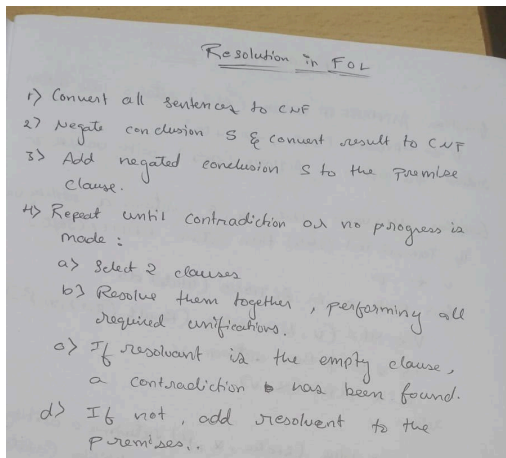 Resolution in FOL
1) Convert all sentences to CNF
2) Negate conclusion S & convert result to CNF
3) Add negated conclusion S to the premise
clause.
4) Repeat until contradiction or no progress is
made :
a) Select 2 clauses
b) Resolve them together, performing all
required unifications.
c) If resolvant is the empty clause,
a contradiction has been found.
d) If not, add resolvent to the
premises..